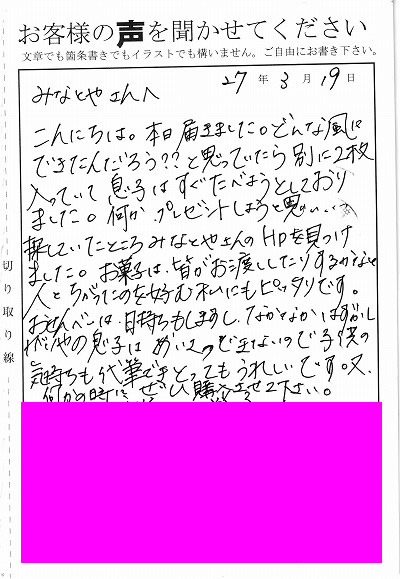 お客様の声を聞かせてください
文章でも箇条書きでもイラストでも構いません。ご自由にお書き下さい。
27年3月19日
みなとやさんへ
こんにちは。本日届きました。どんな風に
できたんだろう??と思っていたら別に2枚
入っていて息子はすぐたべようとしており
ました。何かプレゼントしようと思い、、、
探していたところみなとやさんのHPを見つけ
ました。お菓子は、皆がお渡ししたりするかなと
人とちがったのを好む私にもピッタリです。
おせんべいは、日持ちもしますし、なかなかはずかし
がりやの息子は
できないので子供の
気持ちも代筆できとってもうれしいです。又、
何かの時は、ぜひ購入させて下さい。
切り取り線